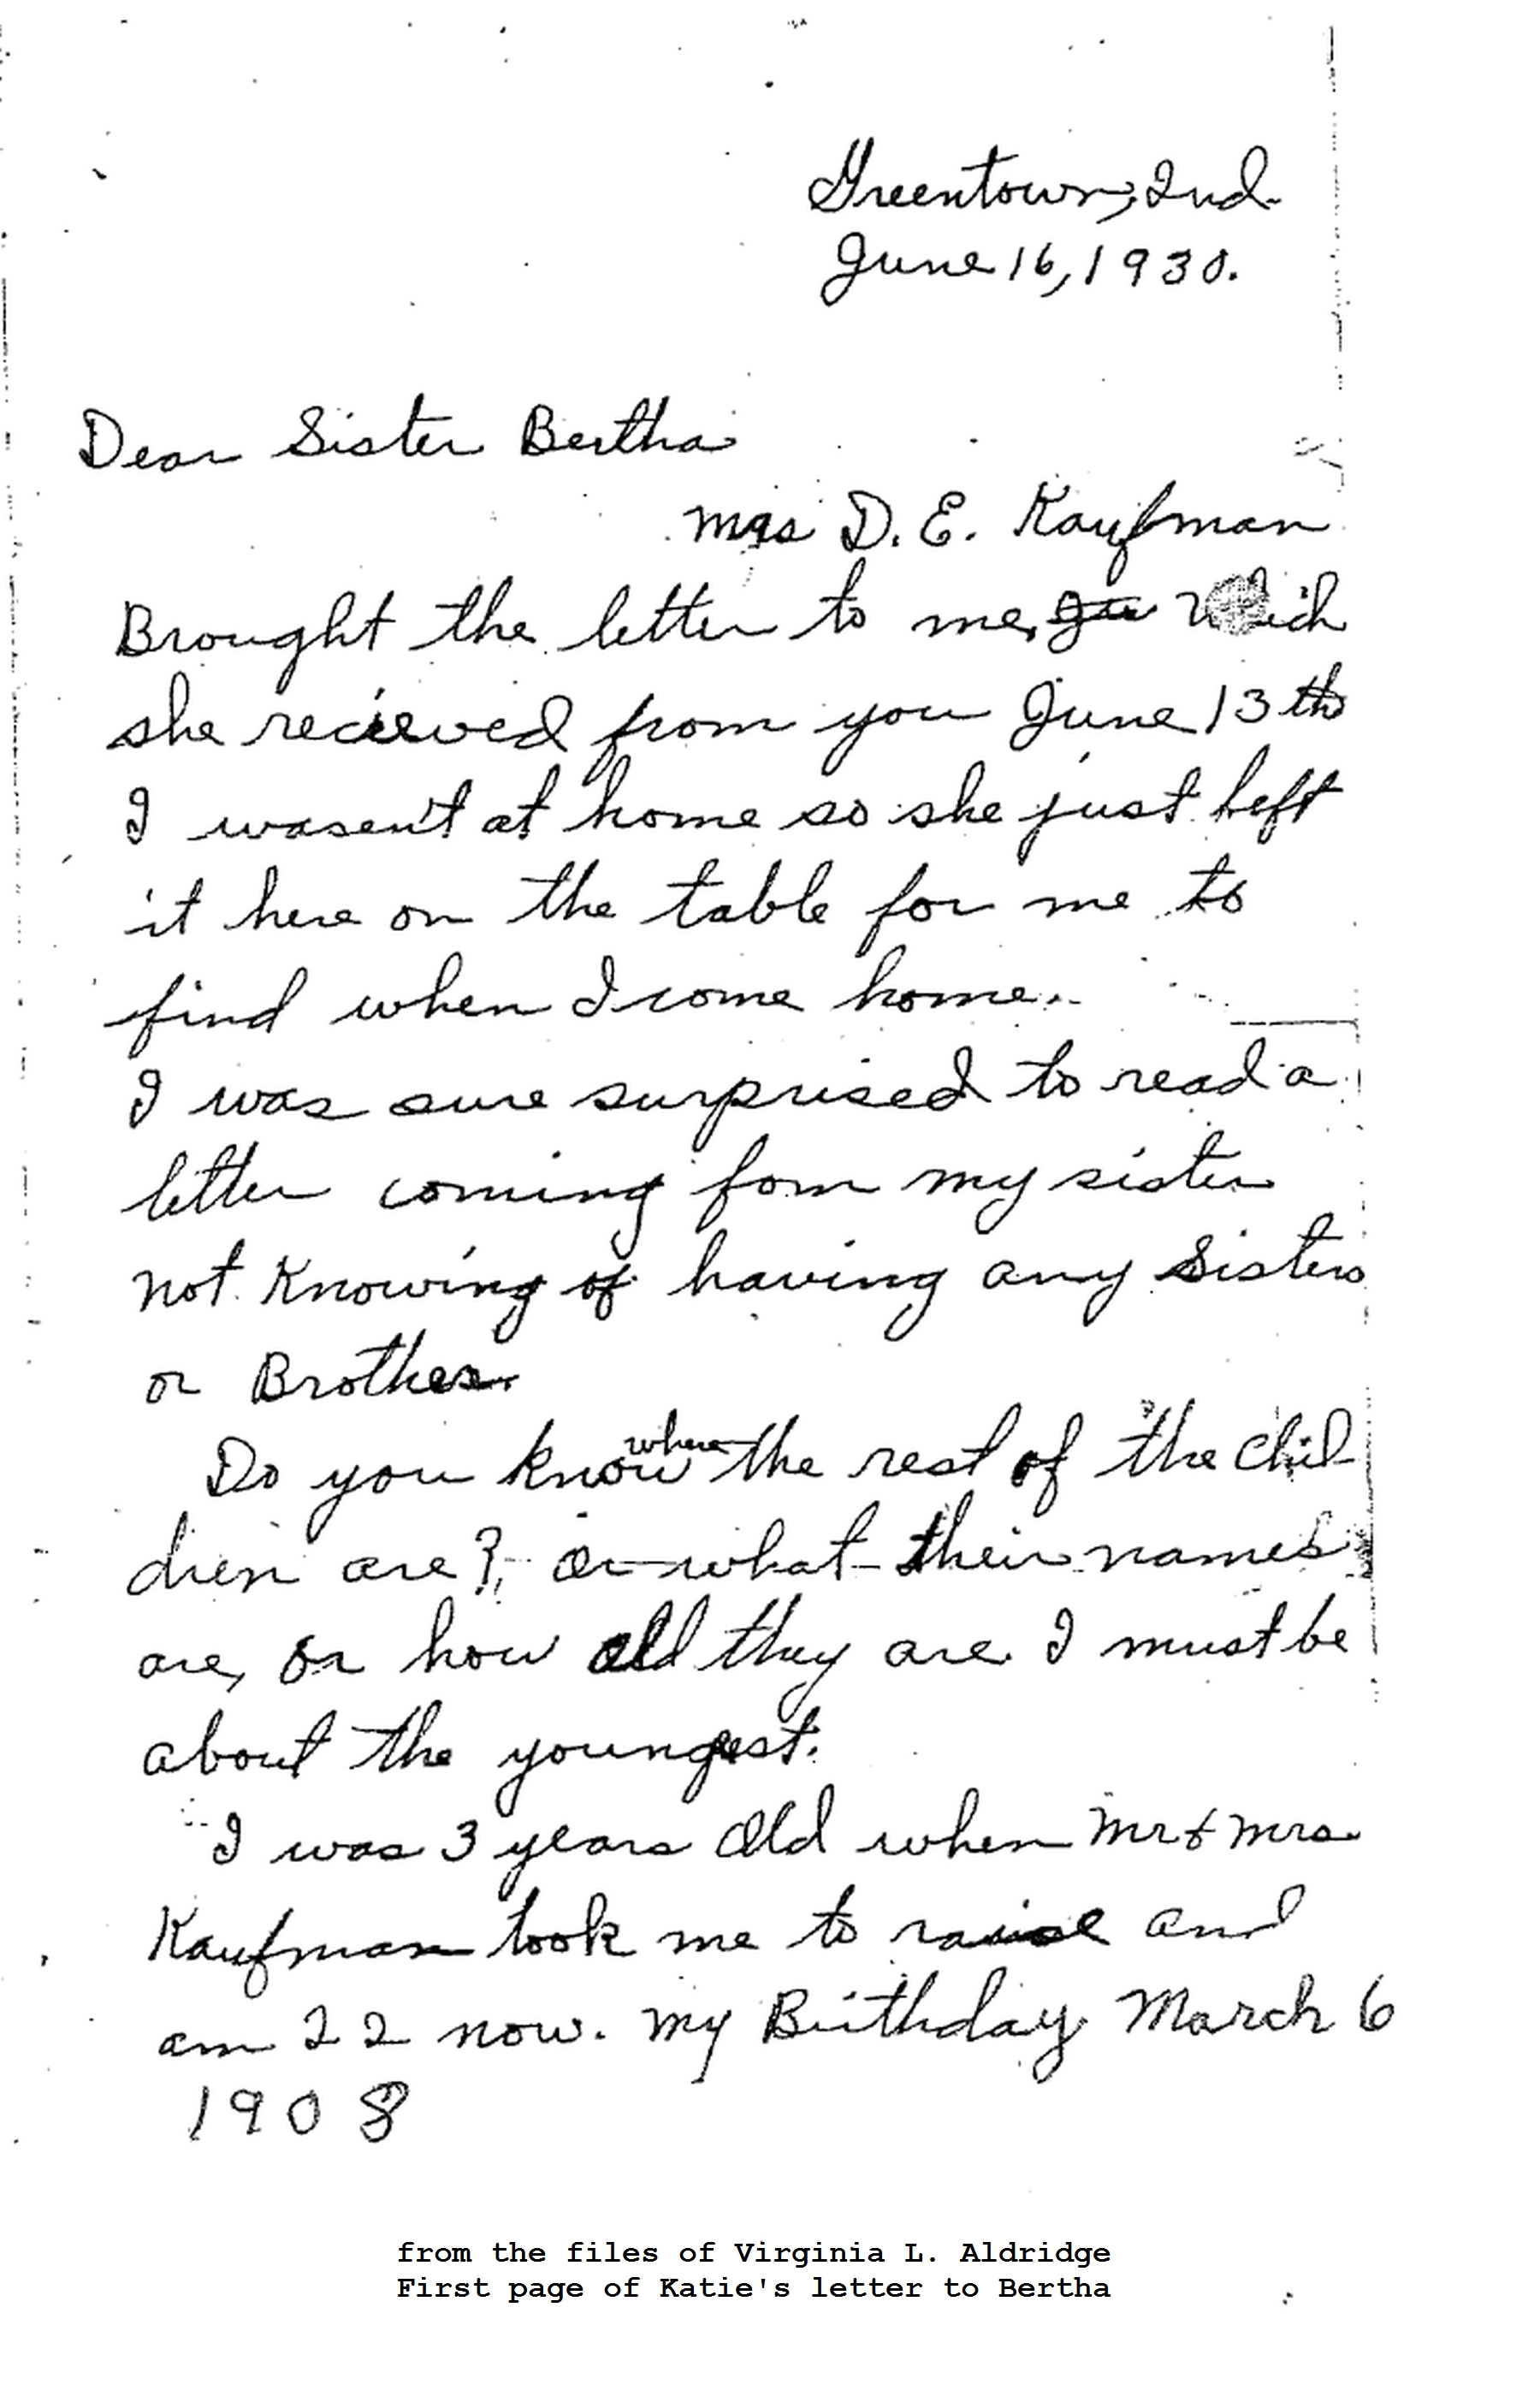 Greentown, Ind.
June 16, 1930.
Dear Sister Bertha
Mrs D. E. Kaufman
Brought the letter to me, which
she recieved from you June 13th
I wasen't at home so she just left
it here on the table for me to
find when I come home.
I was sure surprised to read a
letter coming fom my sister
not Knowing of having any Sisters
or Brother.
Do you know where the rest of the Chil-
dren are? Or what their names
are, or how old they are. I must be
about the youngest.
I was 3 years Old when Mr & Mrs
Kaufman took me to raise and
am 22 now. My Birthday March 6
1908
from the files of Virginia L. Aldridge
First page of Katie's letter to Bertha